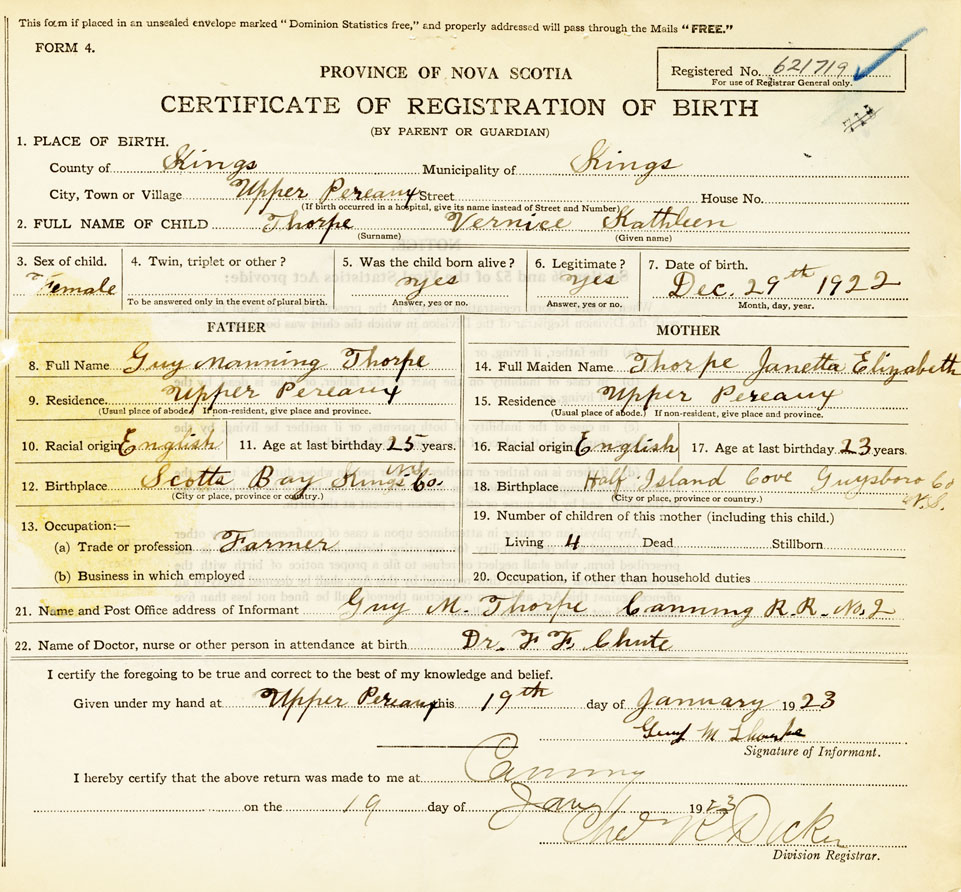 This form if placed in an unsealed envelope marked "Dominion Statistics free," and properly addressed will pass through the Mails "FREE."
FORM 4.
Registered No. 621719
For use of Registrar General only.
PROVINCE OF NOVA SCOTIA
CERTIFICATE OF REGISTRATION OF BIRTH
(BY PARENT OR GUARDIAN)
1. PLACE OF BIRTH.
County of Kings Municipality of Kings
City, Town or Village Upper Pereaux Street House No.
(If birth occurred in a hospital, give its name instead of Street and Number)
2. FULL NAME OF CHILD Thorpe Vernice Kathleen
(Surname) (Given name)
3. Sex of child. 4. Twin, triplet or other? 5. Was the child born alive? 6. Legitimate? 7. Date of birth.
Female yes yes Dec. 29th 1922
To be answered only in the event of plural birth. Answer, yes or no. Answer, yes or no. Month, day, year.
FATHER MOTHER
8. Full Name Guy Manning Thorpe 14. Full Maiden Name Thorpe Janetta Elizabeth
9. Residence Upper Pereaux 15. Residence Upper Pereaux
(Usual place of abode.) If non-resident, give place and province. (Usual place of abode.) If non-resident, give place and province.
10. Racial origin English 11. Age at last birthday 25 years. 16. Racial origin English 17. Age at last birthday 23 years.
12. Birthplace Scotts Bay Kings Co. N.S. 18. Birthplace Half Island Cove Guysboro Co N.S.
(City or place, province or country.) (City or place, province or country.)
13. Occupation:— 19. Number of children of this mother (including this child.)
(a) Trade or profession Farmer Living 4 Dead Stillborn
(b) Business in which employed 20. Occupation, if other than household duties
21. Name and Post Office address of Informant Guy M. Thorpe Canning R.R. No. 2
22. Name of Doctor, nurse or other person in attendance at birth Dr. F. F. Chute
I certify the foregoing to be true and correct to the best of my knowledge and belief.
Given under my hand at Upper Pereaux this 19th day of January 1923
Guy M Thorpe
Signature of Informant.
I hereby certify that the above return was made to me at Canning
on the 19 day of Jany 1923
Division Registrar.